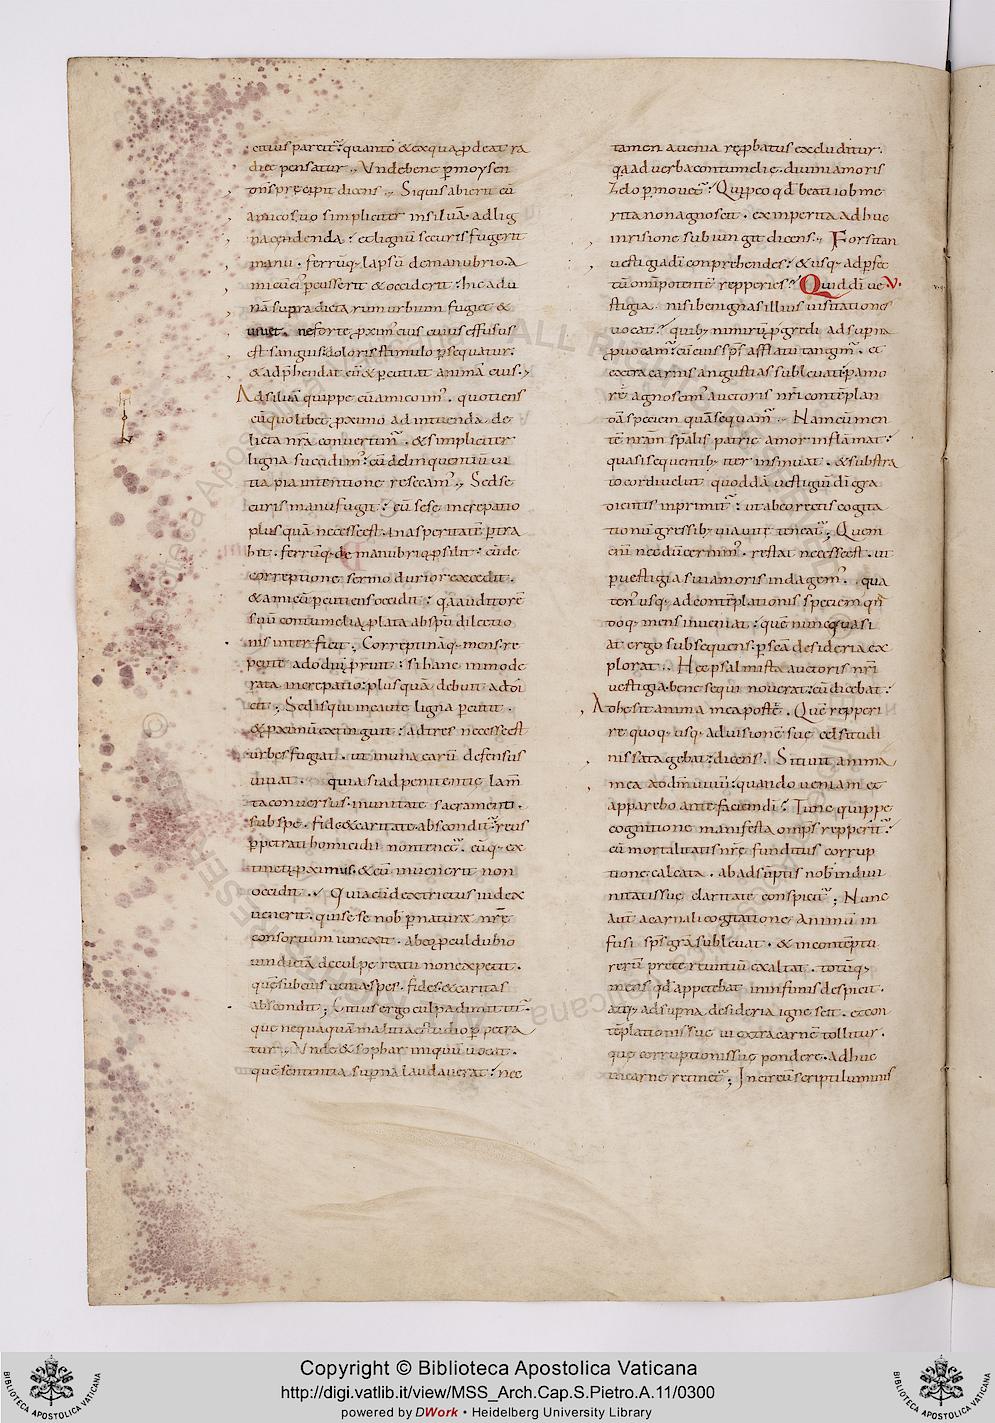 etius parcit᷒. quanto & ex qua ꝓdeat ra
dice pensatur., Unde bene ꝑ moysen
Si quis abierit cū
amico suo simpliciter in silvā. ad lig
na cedenda. et lignū securis fugerit
manu. ferrūq; lapsū de manubrio. a
micū ei᷒ ꝑcusserit & occiderit. hic ad u
nā supradictarum urbium fugiet &
vivet. ne forte ꝓxim᷒ eius cuius effusus
est sanguis. doloris stimulo ꝑsequatur.
& adp̄hendat eū & ꝑcutiat animā eius.,
Ad silvā quippe cū amico im᷒. quotiens
cūquolibet ꝓximo ad intuenda de
licta nr̄a convertim᷒. & simpliciter
ligna succidim᷒. cū delinquentiū vi
tia pia intentione resecam᷒., Sed se
curis manu fugit. cū sese increpatio
plus quā necesse est. in asperitatē ꝑtra
hit. ferrūq; de manubrio ꝓsilit. cū de
correptione sermo durior excedit.
& amicū ꝑcutiens occidit. q̄a auditorē
suū contumelia ꝓlata ab sp̄u dilectio
nis interficit; Correpti nāq; mens. re
pente ad odiū ꝓruit. si hanc inmode
rata increpatio. plus quā debuit addi
cit; Sed is qui incaute ligna ꝑcutit.
& ꝓximū extinguit. ad tres necesse est
urbes fugiat. ut in una earū defensus
vivat. quia si ad penitentie lam̄
ta conversus. in unitate sacramenti.
sub spe. fide & caritate. abscondit᷒. reus
ꝑpetrati homicidii non tenet᷒. eūq; ex
tincti ꝓximus. & cū invenerit non
occidit., Quia cū districtus iudex
venerit. qui sese nob̄ ꝑ naturę nr̄e
consortium iunxit. ab eo ꝓculdubio
vindictā de culpe reatu non expetit.
quē sub eius venia spes. fides. & caritas
abscondit; Citius ergo culpa dimittit᷒.
que nequaquā malitiae studio ꝑpetra
tur., Unde & sophar iniquū vocat.
quē sententia supna laudaverat. nec
tamen a venia rep̄batus excluditur.
q̄a ad verba contumelie. divini amoris
zelo ꝑmovet᷒. Qui ꝓ eo qd̄ beati iob me
rita non agnoscit. ex inperitia adhuc
inrisione subiungit dicens., Forsitan
vestigia dī conprehendes. & usq; ad ꝑfec
tū omīpotentē repperies? Quid dī ve V.
stigia. nisi benignas illius visitationes
vocat? quib; nimirū ꝓgredi ad supna
ꝓvocam᷒. cū eius sp̄s afflatu tangim᷒. et
extra carnis angustias sublevati. ꝑ amo
rē agnoscim᷒ auctoris nr̄i contēplan
dā speciem quā sequam᷒., Nam cū men
tē nr̄am sp̄alis patrie amor inflāmat.
quasi sequentib; iter insinuat. & substra
to cordi velut quoddā vestigiū dī gra
dientis inprimit᷒. ut ab eo rectis cogita
tionū gressib; via vite teneat᷒; Quem
enī necdū cernim᷒. restat necesse est. ut
ꝑ vestigia sui amoris indagem᷒. qua
ten᷒ usq; ad contēplationis speciem
mens inveniat. quē nunc quasi
a tergo subsequens. ꝑ scā desideria ex
plorat., Hęc psalmista auctoris nr̄i
vestigia. bene sequi noverat. cū dicebat.
Adhesit anima mea post tē. Quē repperi
re quoq; usq; ad visionē sue celsitudi
nis satagebat. dicens. Sitivit anima
mea ad dm̄ vivum. quando veniam et
apparebo ante faciem dī? Tunc quippe
cognitione manifesta omp̄s repperit᷒.
cū mortalitatis nr̄e funditus corrup
tione calcata. ab adsūptis nob̄ in divi
nitatis sue claritate conspicit᷒; Nunc
aut̄ a carnali cogitatione animū in
fusi sp̄s gr̄a sublevat. & in contēptū
rerū preter euntiū exaltat. totūq;
mens qd̄ appetebat in infimis despicit.
atq; ad supna desideria ignescit. et con
tēplationis sue vi extra carnē tollitur.
que corruptionis sue pondere. adhuc
in carne retinet᷒; Incircūscripti luminis
Copyright © Biblioteca Apostolica Vaticana
http://digi.vatlib.it/view/MSS_Arch.Cap.S.Pietro.A.11/0300
powered by DWork • Heidelberg University Library
BIBLIOTECA APOSTOLICA VATICANA
BIBLIOTECA APOSTOLICA VATICANA